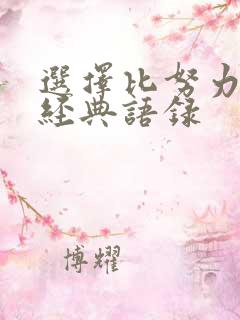 選擇比努力
經典語錄
博耀